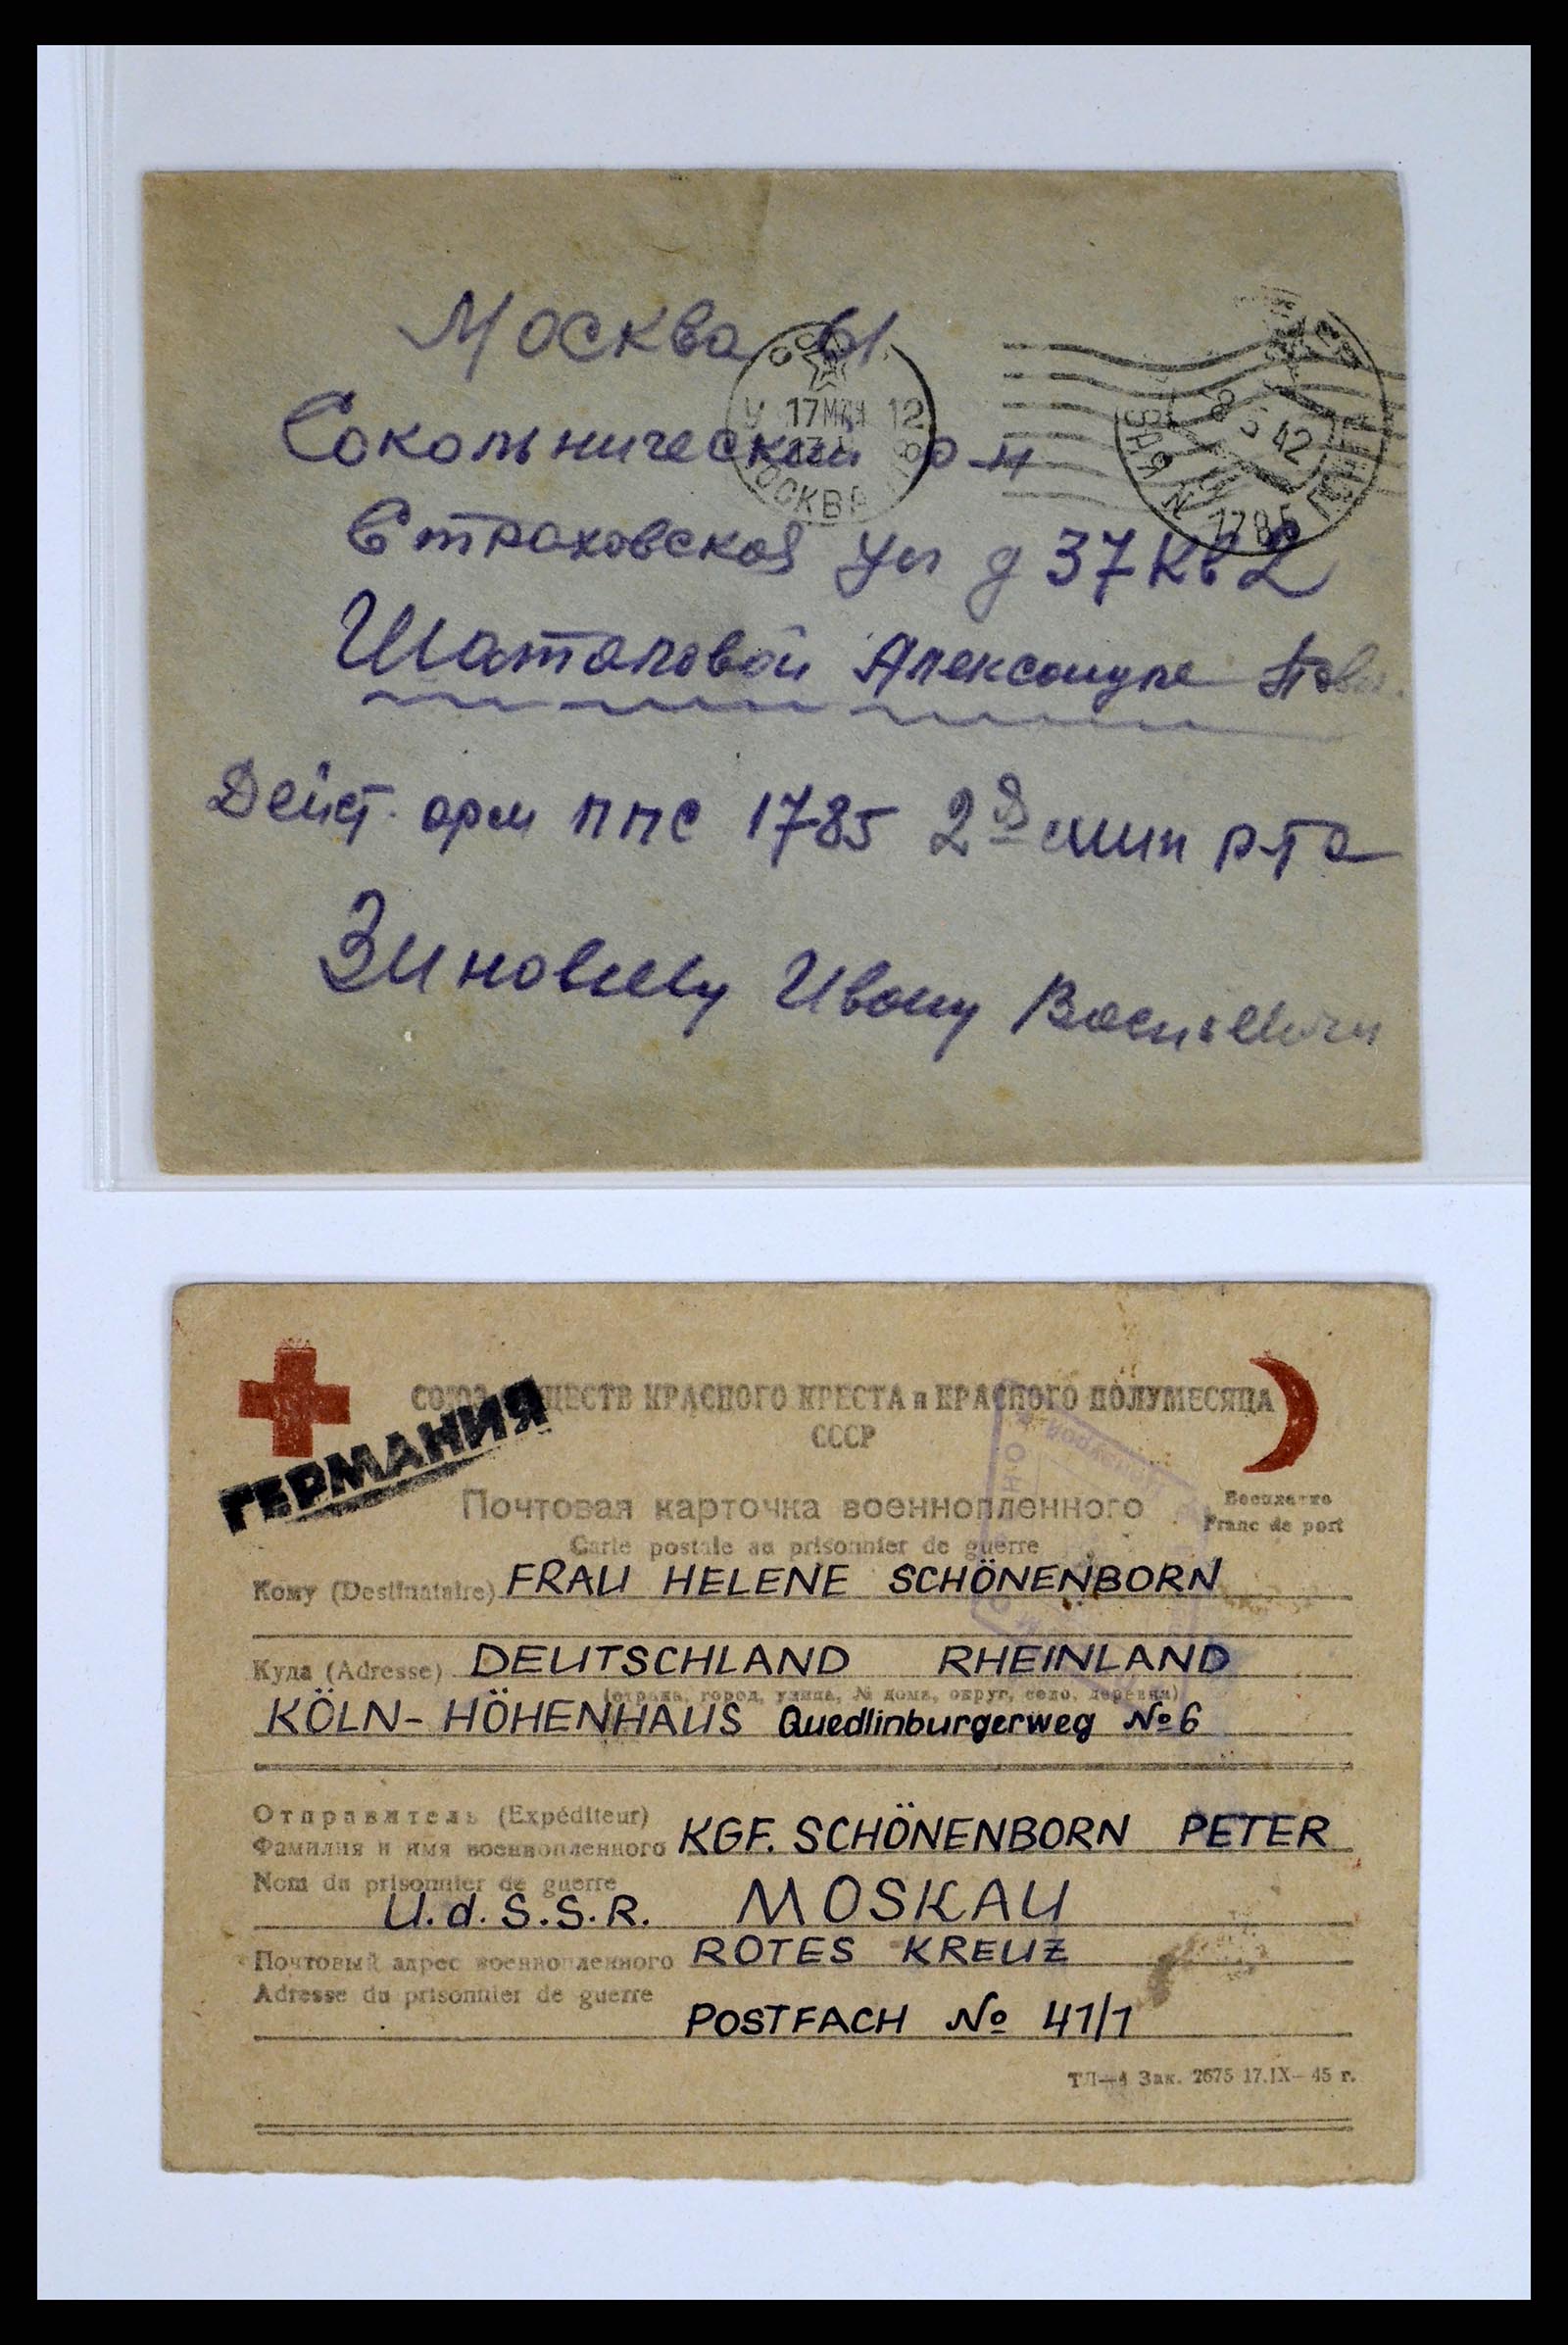 Москва 61
Сокольнический р-н
Страховская ул д 37 кв 2
Шаталовой Александре
Дейст. арм ппс 1785 2я мин р-та
Зиновьеву Ивану Васильевичу
17 МАЯ 12
МОСКВА
8 5 42
1785
СОЮЗ ОБЩЕСТВ КРАСНОГО КРЕСТА и КРАСНОГО ПОЛУМЕСЯЦА
СССР
ГЕРМАНИЯ
Почтовая карточка военнопленного
Бесплатно
Franc de port
Carte postale au prisonnier de guerre
Кому (Destinataire) FRAU HELENE SCHÖNENBORN
Куда (Adresse) DEUTSCHLAND RHEINLAND
(страна, город, улица, № дома, округ, село, деревня)
KÖLN-HÖHENHAUS Quedlinburgerweg № 6
Отправитель (Expéditeur)
Фамилия и имя военнопленного KGF. SCHÖNENBORN PETER
Nom du prisonnier de guerre
U.d.S.S.R. MOSKAU
Почтовый адрес военнопленного ROTES KREUZ
Adresse du prisonnier de guerre
POSTFACH № 41/1
ТЛ—4 Зак. 2675 17.IX—45 г.